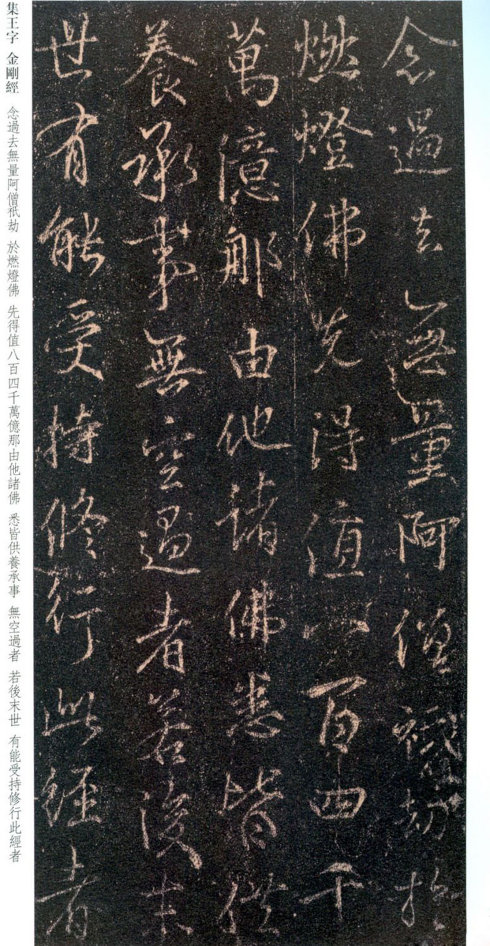 念過去無量阿僧祇劫於
燃燈佛先得值八百四千
萬億那由他諸佛悉皆供
養承事無空過者若後末
世有能受持修行此經者
集王字 金剛經 念過去無量阿僧祇劫 於燃燈佛 先得值八百四千萬億那由他諸佛 悉皆供養承事 無空過者 若後末世 有能受持修行此經者